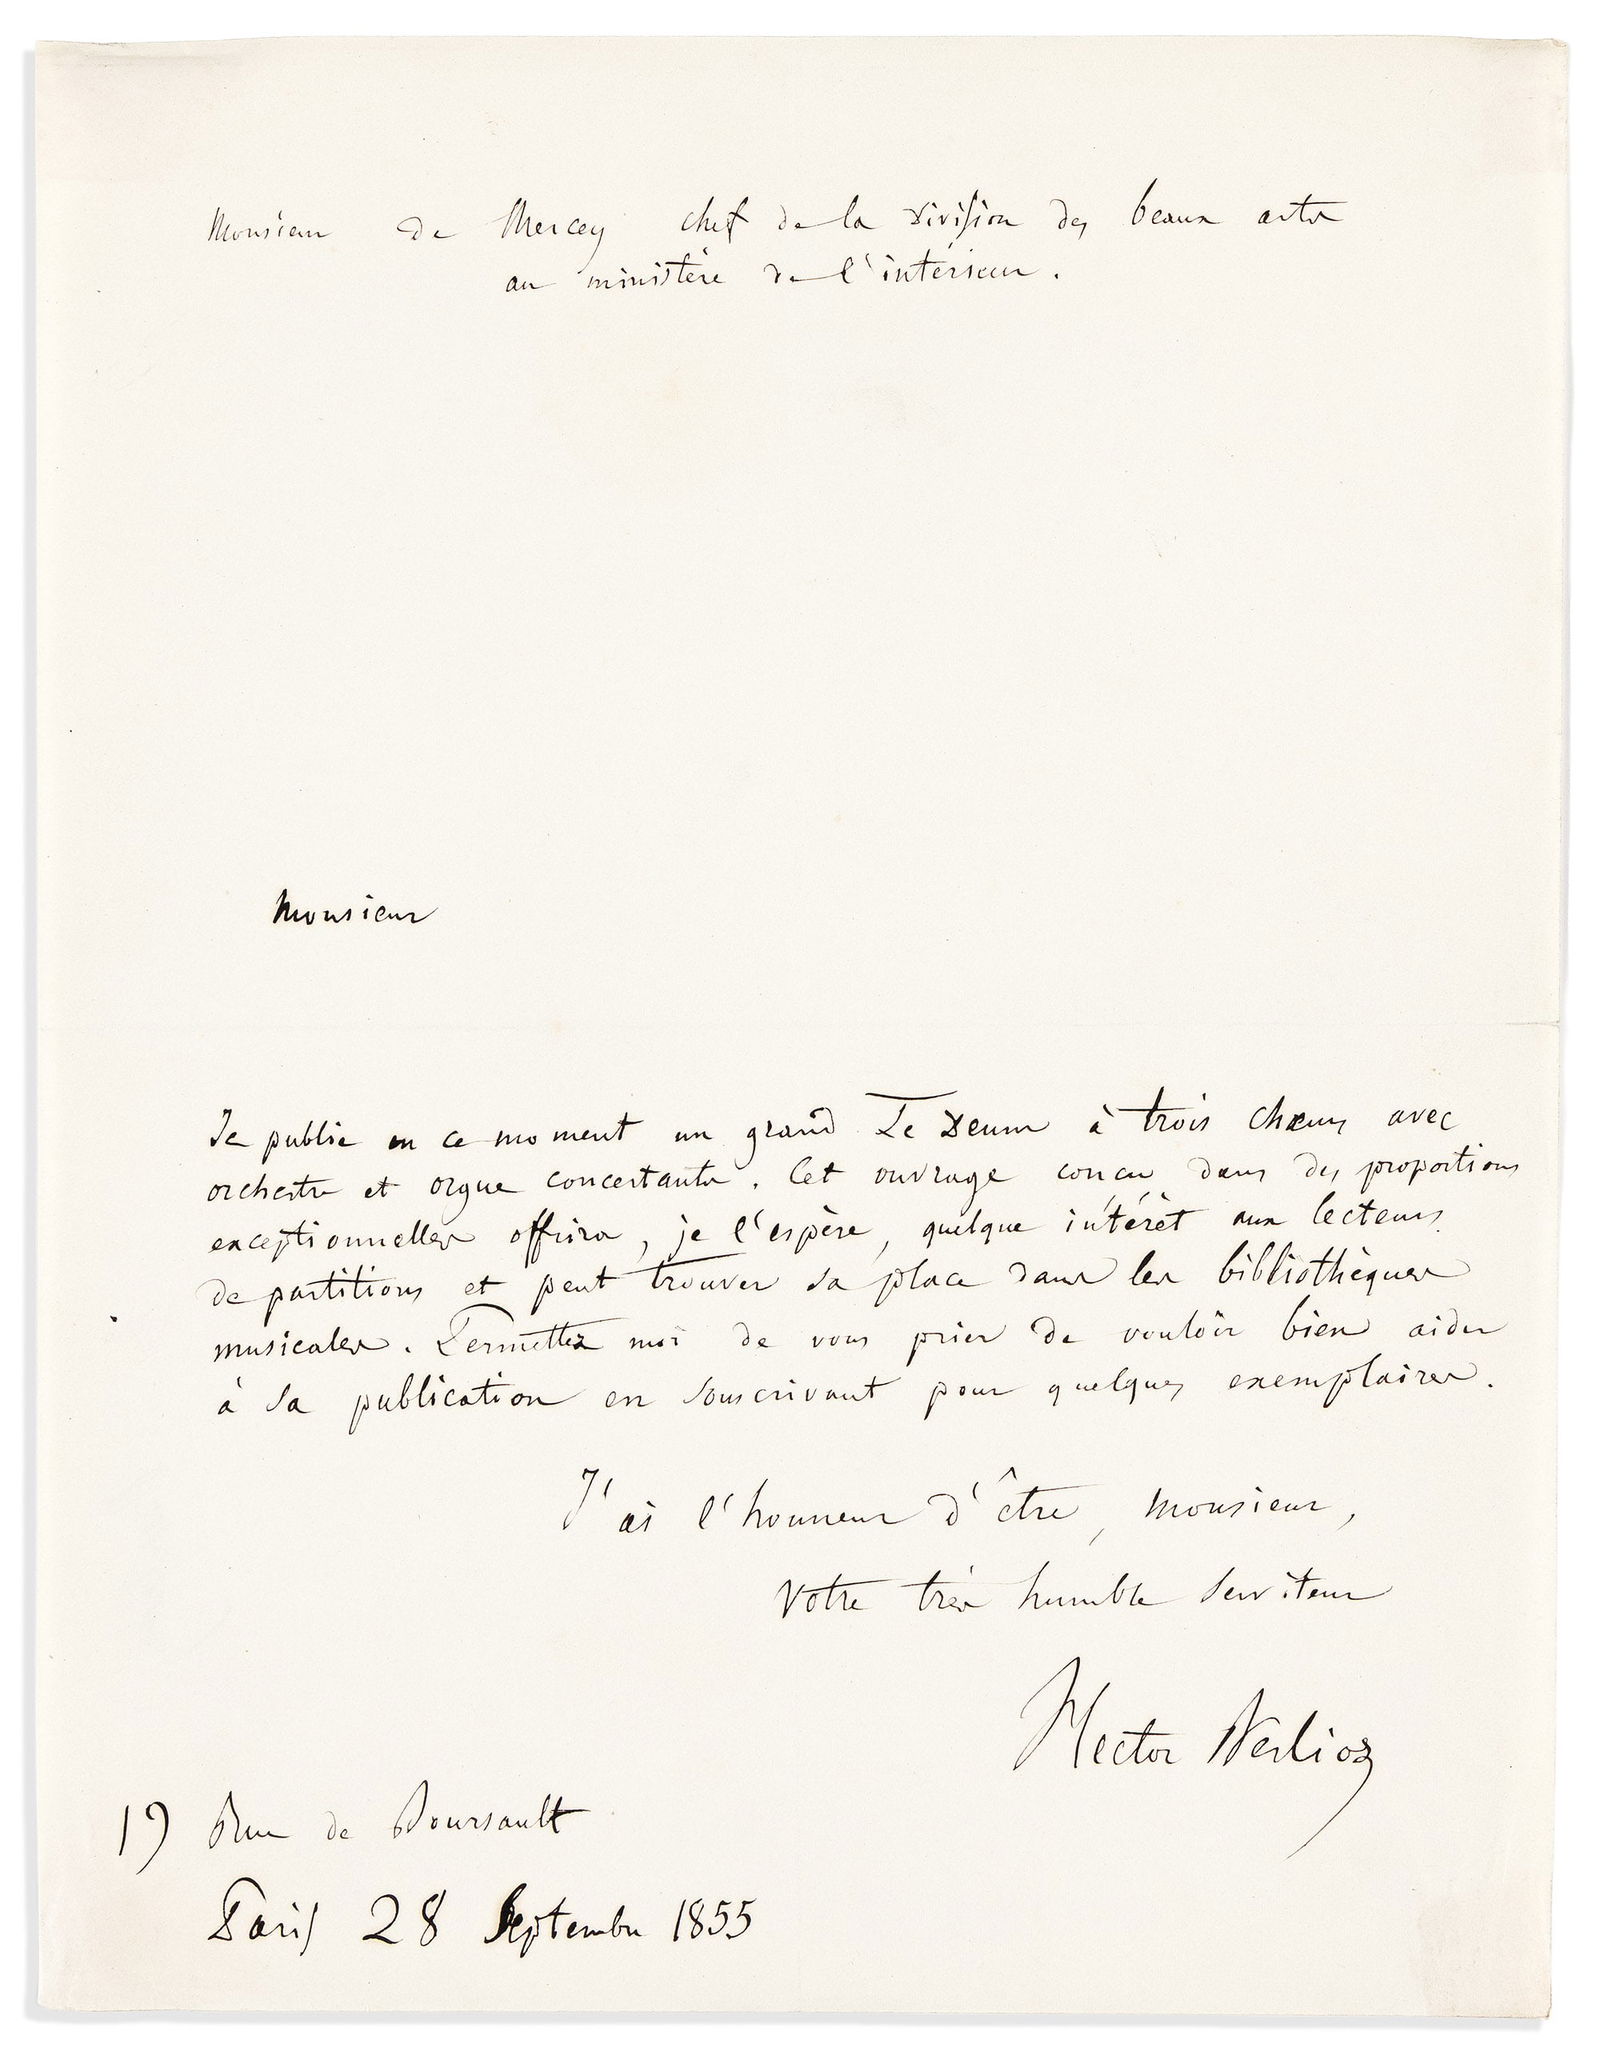 Monsieur de Mercey chef de la division des beaux arts
au ministère de l'intérieur.
Monsieur
Je publie en ce moment un grand Te Deum à trois chœurs avec
orchestre et orgue concertants. Cet ouvrage concu dans des proportions
exceptionnelles offrira, je l'espère, quelque intérèt aux lecteurs
de partitions et peut trouver sa place dans les bibliothèques
musicales. Permettez moi de vous prier de vouloir bien aider
à sa publication en souscrivant pour quelques exemplaires.
J'ai l'honneur d'être, Monsieur,
Votre très humble serviteur
Hector Berlioz
19 Rue de Boursault
Paris 28 Septembre 1855